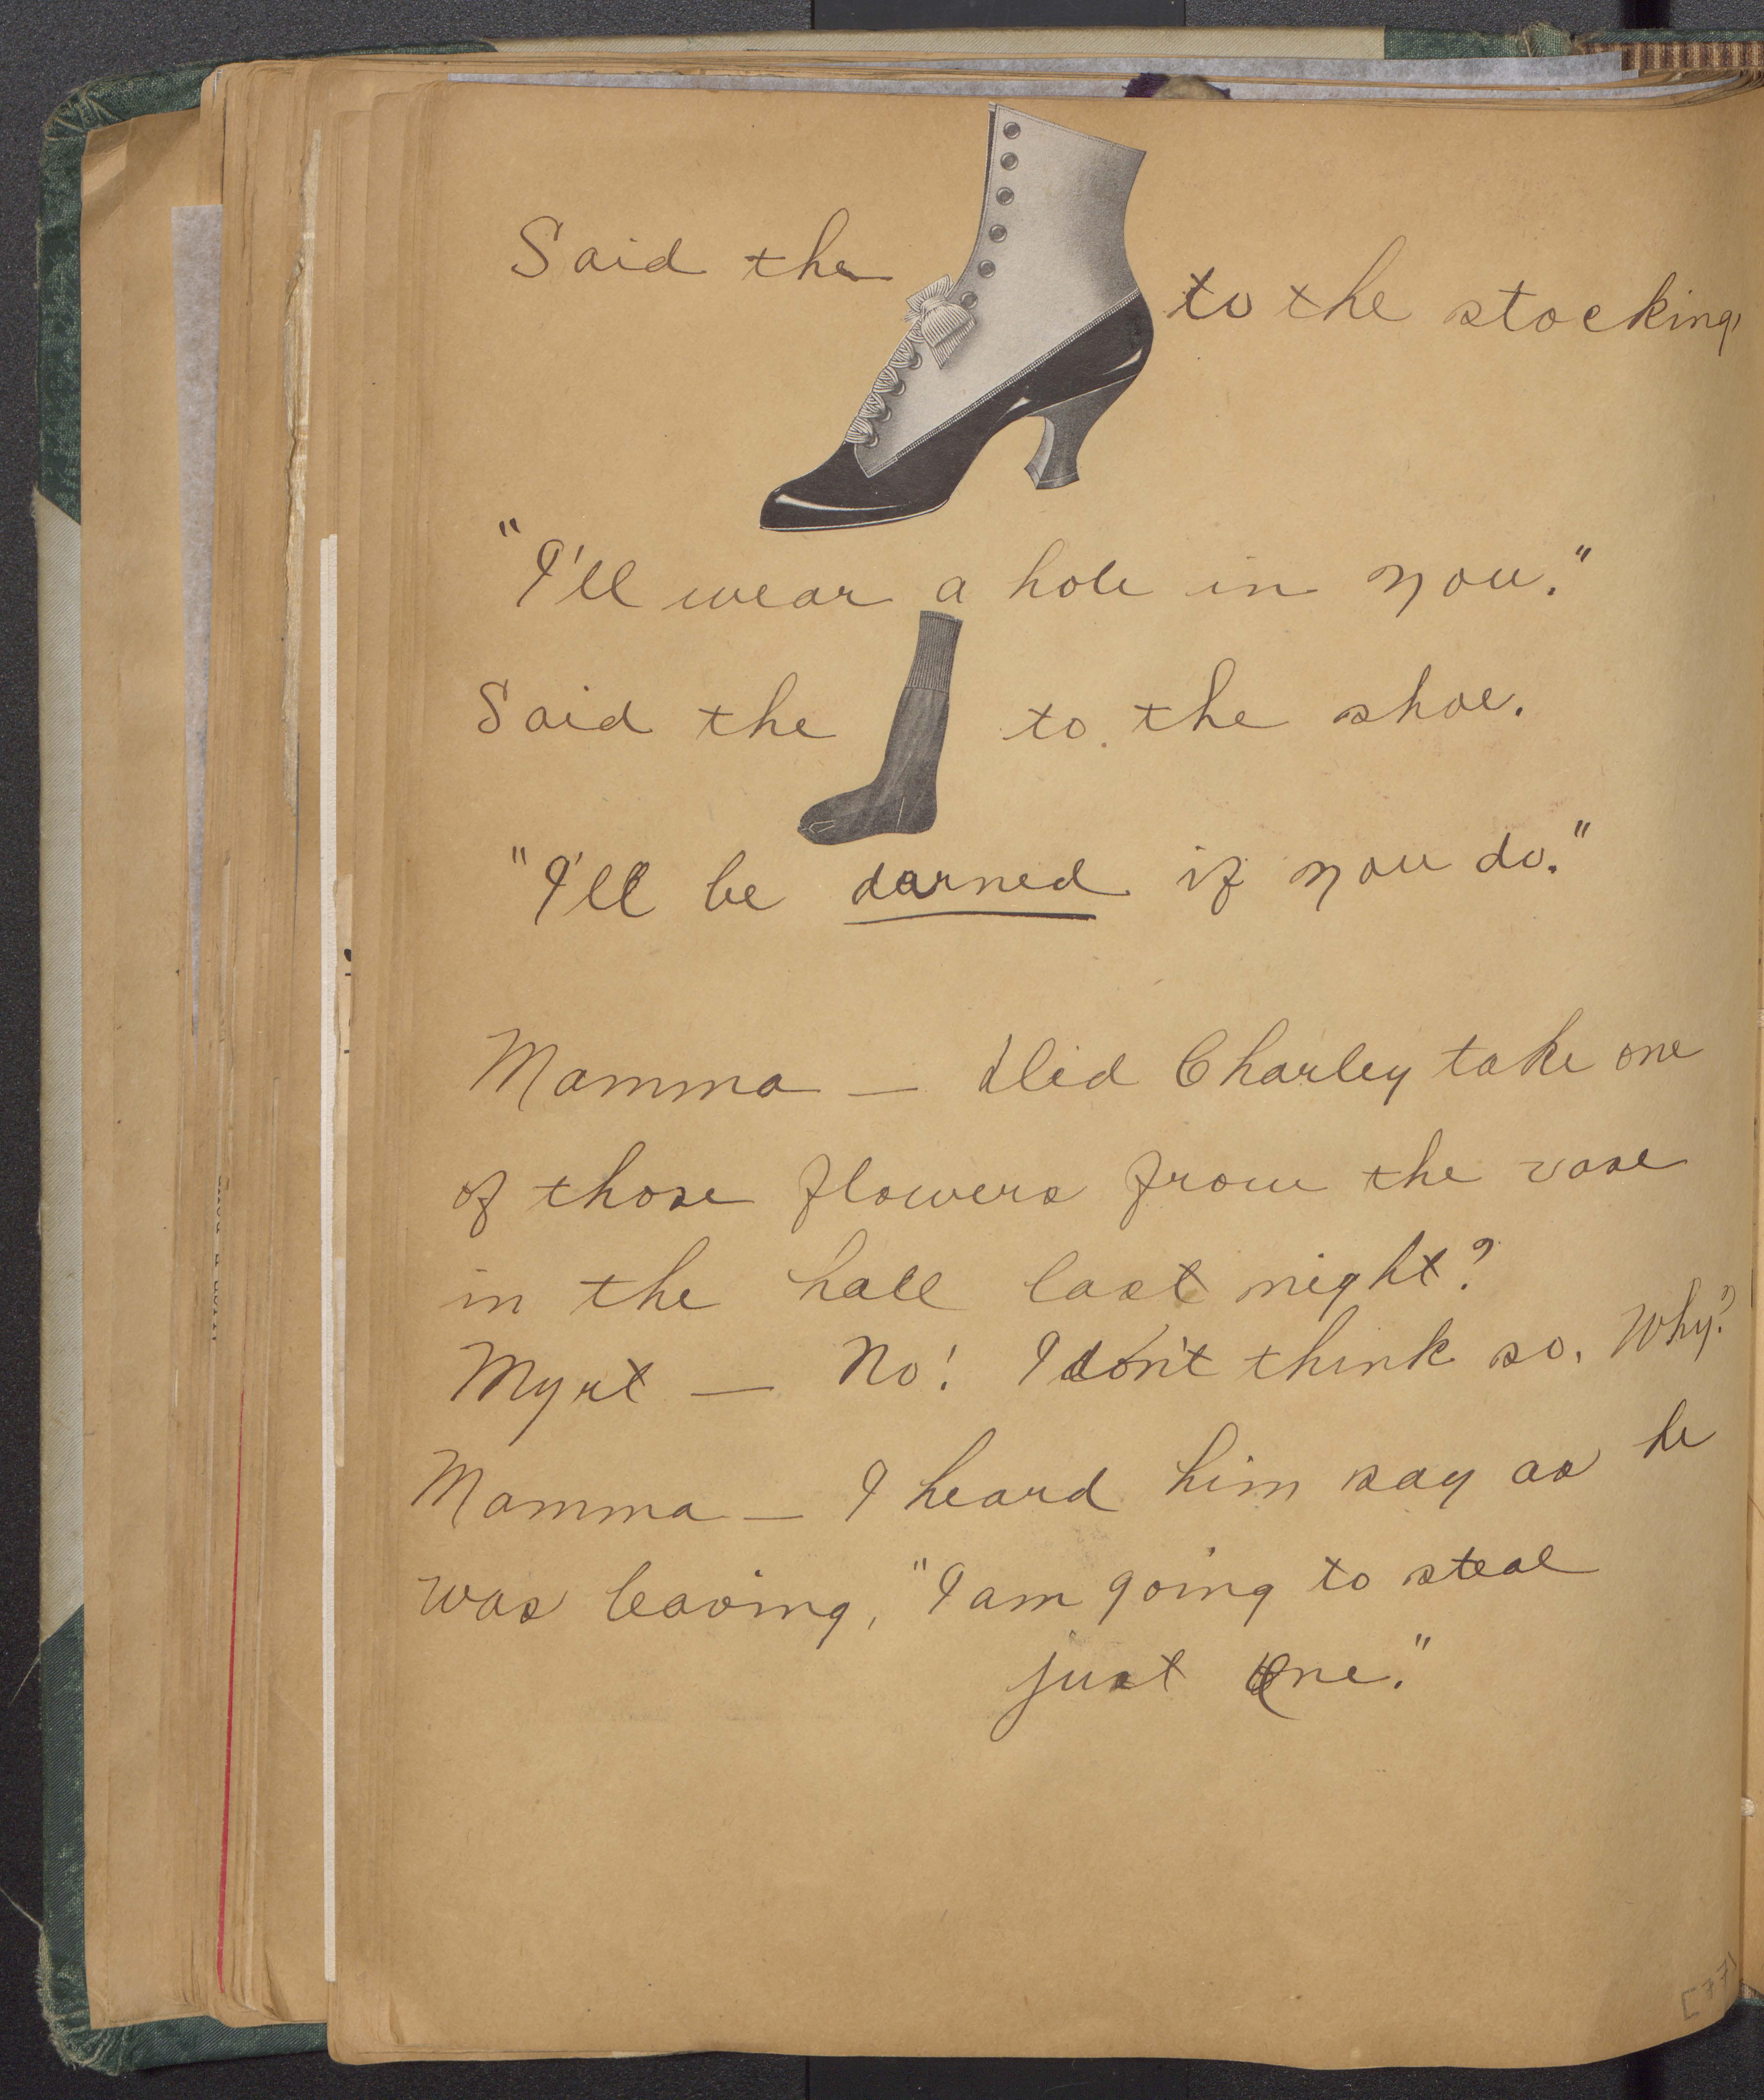 Said the to the stocking,
"I'll wear a hole in you."
Said the to the shoe.
"I'll be darned if you do."
Mamma — Did Charley take one
of those flowers from the vase
in the hall last night?
Myrt — No! I don't think so. Why?
Mamma — I heard him say as he
was leaving, "I am going to steal
just one."
[77]